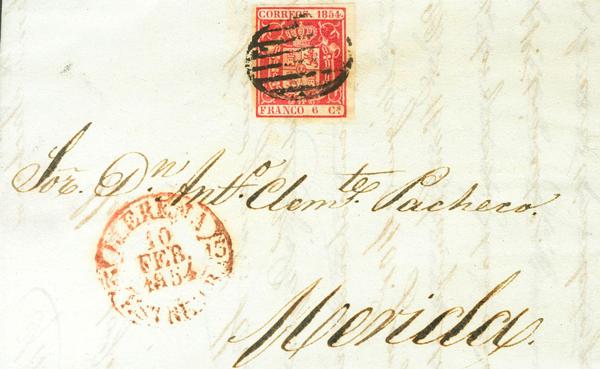 CORREOS. 1854.
FRANCO 6 Cs.
Sor. Dn. Anto. Clemte. Pacheco.
LLERENA
10
FEB.
1854
Merida.